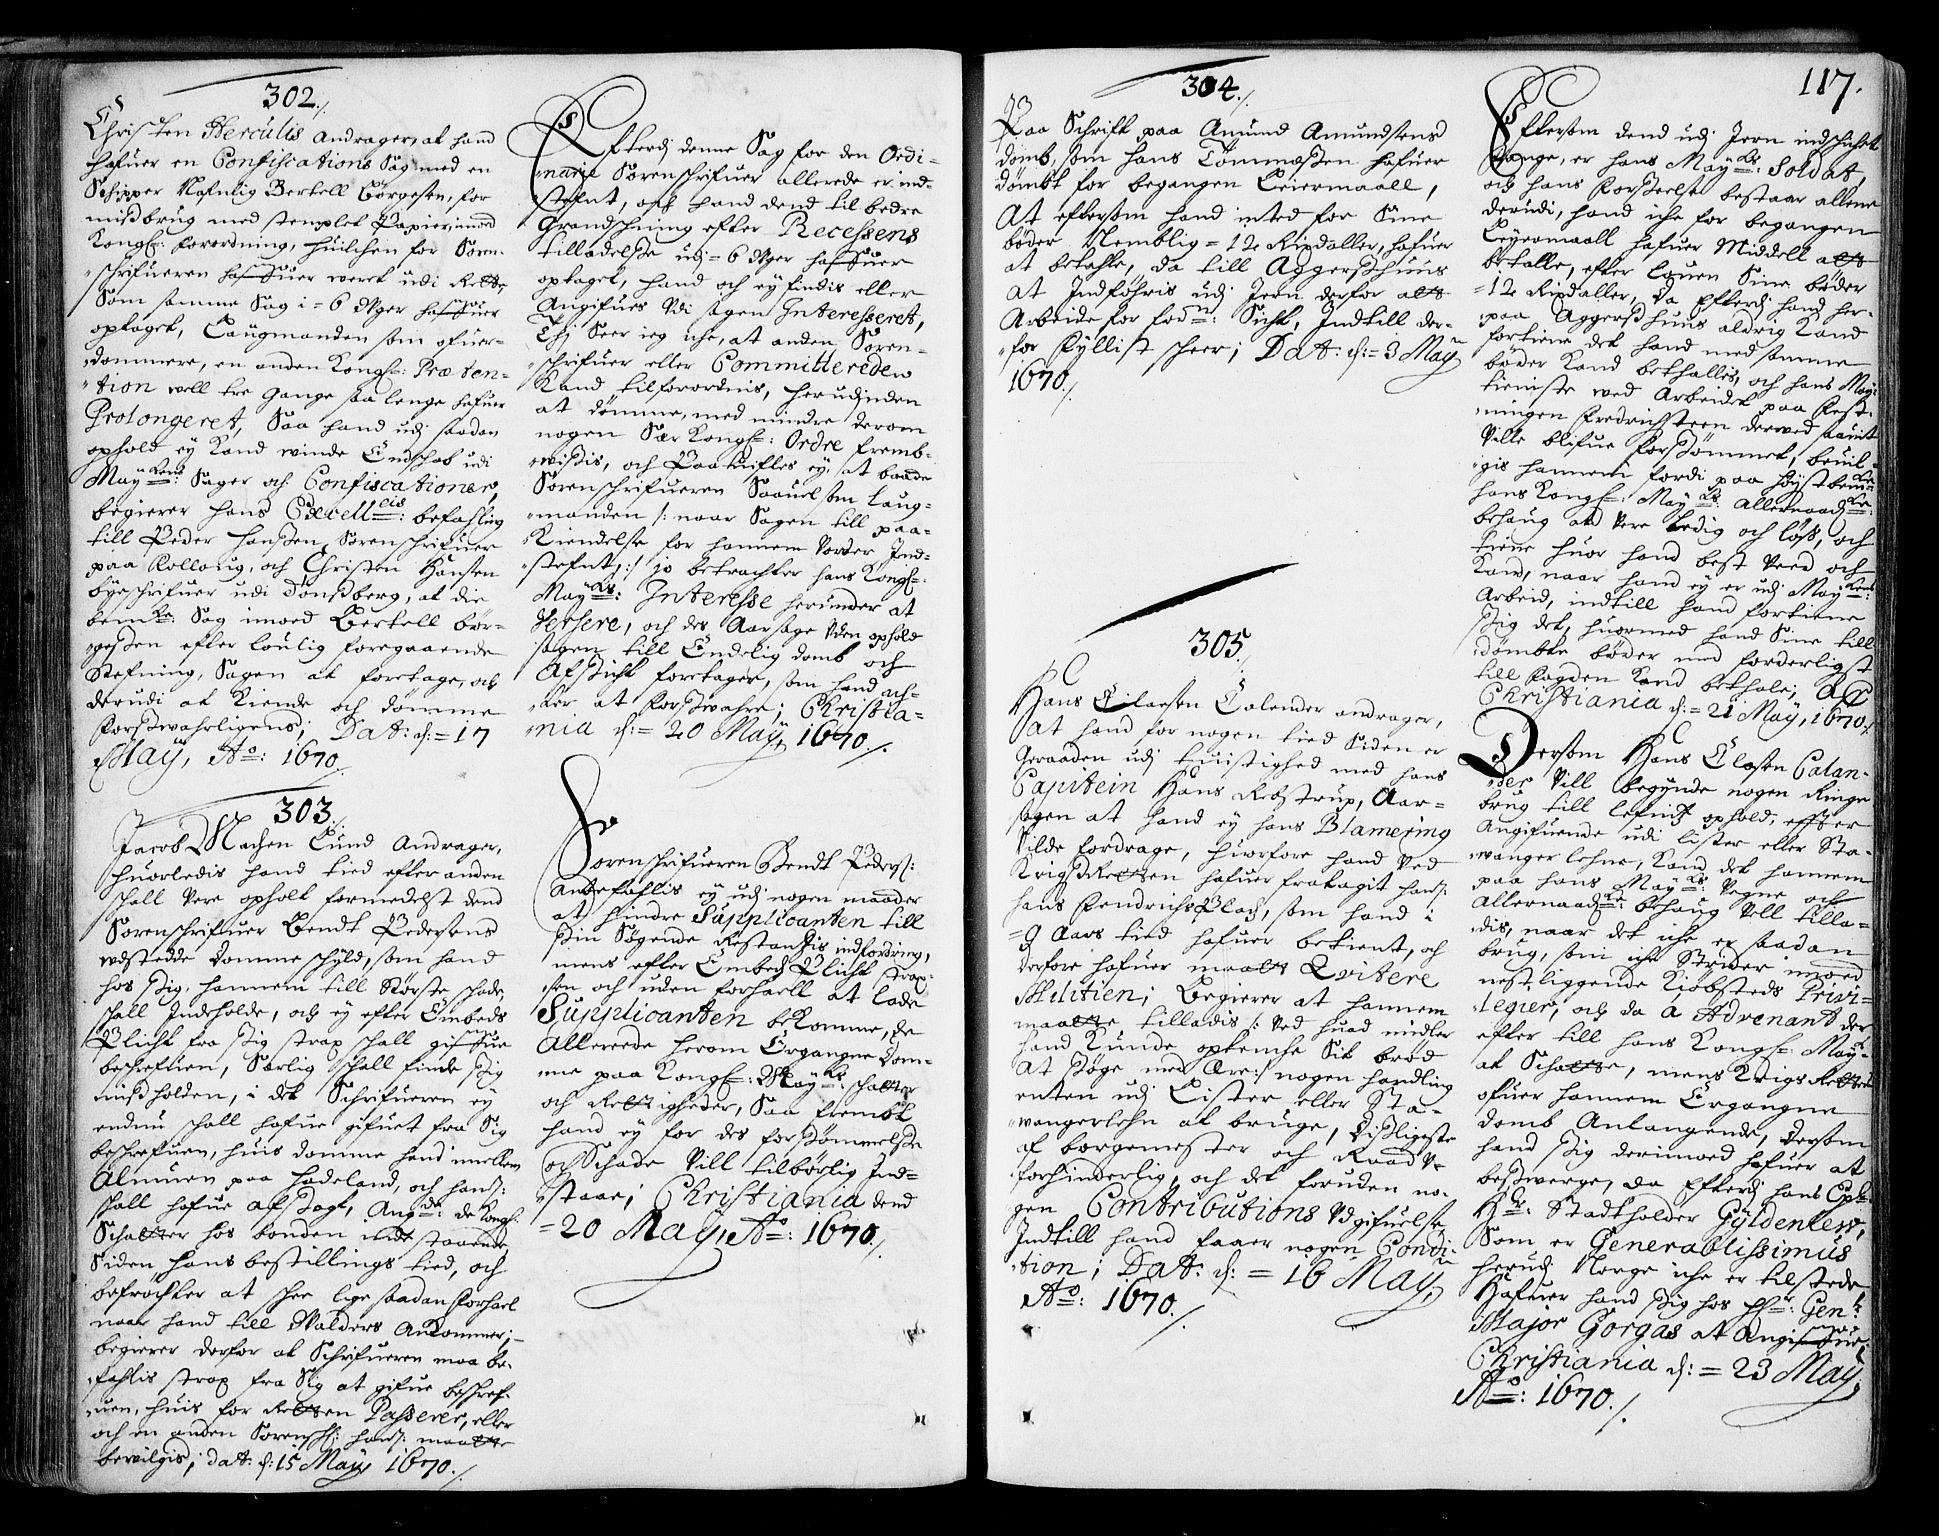 302./.
Christen Herculis andrager, at hand
hafuer en Confiscations Sag med en
Schipper Nafnlig Bertell Børgesen, for
misbrug med stemplet Papier, imod
Kongl: forordning, huilchen for Soren-
schrifueren hafuer verit udi Rette,
Som samme Sag i = 6 Uger hafuer
optaget, Laugmanden som ofuer-
dommere, en anden Kongl: Præten-
tion vell tre gange saa lenge hafuer
Prolongeret, Saa hand udj saadan
ophold ey Kand vinde Endschab udi
Mayts: Sager och Confiscationer,
begierer hans Excellcis: befahling
till Peder Hanssen Sorenschrifuer
paa Follong, och Christen Hansen
byeschrifuer udi Tønsberg, at die
bemte: Sag imoed Bertell Bør-
gesen efter loulig foregaaende
Stefning, Sagen at foretage, och
derudi at Kiende och dømme
forsvahrligens; Dat: d: = 17
May, Ao: 1670.
303./.
Jacob Machen Lund Andrager,
huorledis hand tied efter anden
schall Vere opholt formedelst dend
Sorenschrifuer Bendt Pedersens
udstedde domme schyld, som hand
hos sig, hannem till Største schade,
schall Indeholde, och ey efter Embeds
Plicht fra sig strax schall gifue
beschrefuen, Særlig schall finde sig
mißholden, i det Schrifueren ey
endnu schall hafue gifuet fra Sig
beschrefuen, huis domme hand imellem
Almuen paa Hadeland, och hans:
schall hafue afsagt, Angde: de Kongl:
Schatter hos bonden indestaaende
Siden hans bestillings tied, och
befrøchter at schee lige saadan forhael
naar hand till Valders Ankommer;
begierer derfor at Schrifueren maa be-
fahlis strax fra Sig at gifue beschref-
uen, huis for Retten Passerer, eller
och en anden Sorenschr: hans: maatte
bevilgis; dat: d: 15 May 1670./.
Efterdj denne Sag for den Ordi-
narie Sorenschrifuer allerede er ind-
stefnt, och hand dend til bedre
Grandschning efter Recessens
tilladelse udj = 6 Uger hafuer
optaget, hand och ey findis eller
Angifues Udi sagen Interesseret,
Thj Seer ieg iche, at anden Soren-
schrifuer eller Committereden
Kand tilforordnis, herudjnden
at dømme, med mindre derom
nogen Sær Kongl: Ordre fremb-
visis, och Paatuifles ey, at baade
Sorenschrifueren Saauelsom Laug-
manden /: naar Sagen till paa-
Kiendelse for hannem vorder Ind-
stefnt, :/ jo betrachter hans Kongl:
Mayts: Interesse herunder at
Versere, och des Aarsage Uden ophold
sagen till Endelig domb och
Afsicht foretager, som hand ach-
ter at forsvahre; Christia-
nia d: = 20 May, 1670./.
Sorenschrifueren Bendt Peders:
Anbefahlis ey udj nogen maader
at hindre Supplicanten till
Sin Søgende Restantzis indfordring,
mens efter Embeds Plicht strax-
sen och uden forhaell at lade
Supplicanten bekomme, de
Allereede herom Ergangne Dom-
me paa Kongl: Mayts: schatter
och Rettigheder, Saa fremt
hand ey for des forsømmelse
och Schade Vill tilbørlig Ind-
staae; Christiania dend
= 20 May, Ao: 1670./.
304./.
Paa Schrift paa Amund Amundsens
domb, som hans Tommæssen hafuer
dømbt for begangen Leiermaall,
At eftersom hand inted for Sine
bøder Nemblig = 12 Rixdaller, hafuer
at betahle, da till Aggershuus
At Indføhris udj Jern derfor at
Arbeide for fodn: Sicht, Indtill der-
for fyllist scheer; Dat: d: = 3 May
1670./.
305./.
Hans Claesen Calender andrager,
at hand for nogen tied Siden er
Geraaden udj tuistighed med hans
Capitein Hans Rebstrup, Aar-
sagen at hand ey hans Blamering
Vilde fordrage, huorfore hand ved
KrigsRetten hafuer fratagit hans:
hans Fendrichs Plads, som hand i
= 9 Aars tied hafuer betient, och
derfore hafuer maatt Qvitere
Militien; Begierer at hannem
maatte tilladis /: ved huad midler
hand Kunde optenche Sit brød
At søge med Ære :/ nogen handling
enten udj Lister eller Sta-
vangerlehn at bruge, Lisligiste
af borgemester och Raad V-
forhinderlig, och det foruden no-
gen Contributions Udgifuelse,
Indtill hand faaer nogen Condi-
tion; Dat: d: = 16 May,
Ao: 1670./.
117.
Eftersom dend udj Jern indschichet
Fange, er hans Mayts: Soldat,
och hans forseelse bestaar allene
derudi, hand iche for begangen
Leyermaall hafuer Middell at
betalle, efter louen Sine bøder
= 12 Rixdaller, da Efterdj hand her-
paa Aggershuus aldrig Kand
fortiene det hand med samme
bøder Kand bethalles, och hans May:
tieniste ved Arbeidet paa Fest-
ningen Fredrichsteen derved saauit
Ville blifue forsømmet, beuil-
gis hannem fordi paa høystbemte
hans Kongl: Mayts: Allernaadste:
behaug at Vere Ledig och løs, och
tiene huor hand best Veed och
Kand, naar hand ey er udj Mayts:
Arbeid, indtill hand fortiene
Sig det, huormed hand Sine till
dømbte bøder med forderligst
till Fogden Kand bethale; Af
Christiania d: = 21 May, 1670./.
Dersom Hans Clasen Calan-
der Vill begynde nogen Ringe
brug till lefnets ophold, efter
Angifuende udi Lister eller Sta-
vanger lehne, Kand det hannem
paa hans Mayts: Vegne och
Allernaadste: behaug Vell tilla-
dis, naar det iche er saadan
brug, som iche Strider imoed
nestliggende Kiøbsteds Privi-
legier, och da a Advenant der
efter till hans Kongl: Mayt:
at Schatte, mens KrigsRetten
ofuer hannem Ergangne
domb Anlangende, dersom
hand Sig derimoed hafuer at
besverge, da Efterdj hans Exl:
Hr: Stadtholder Gyldenlew,
Som er Generalissimus
herudj Norge iche er tilstede,
Hafuer hand Sig hos Hr: Genl:
Major Gorgas at Angifue,
Christiania d: = 23 May,
Ao: 1670./.